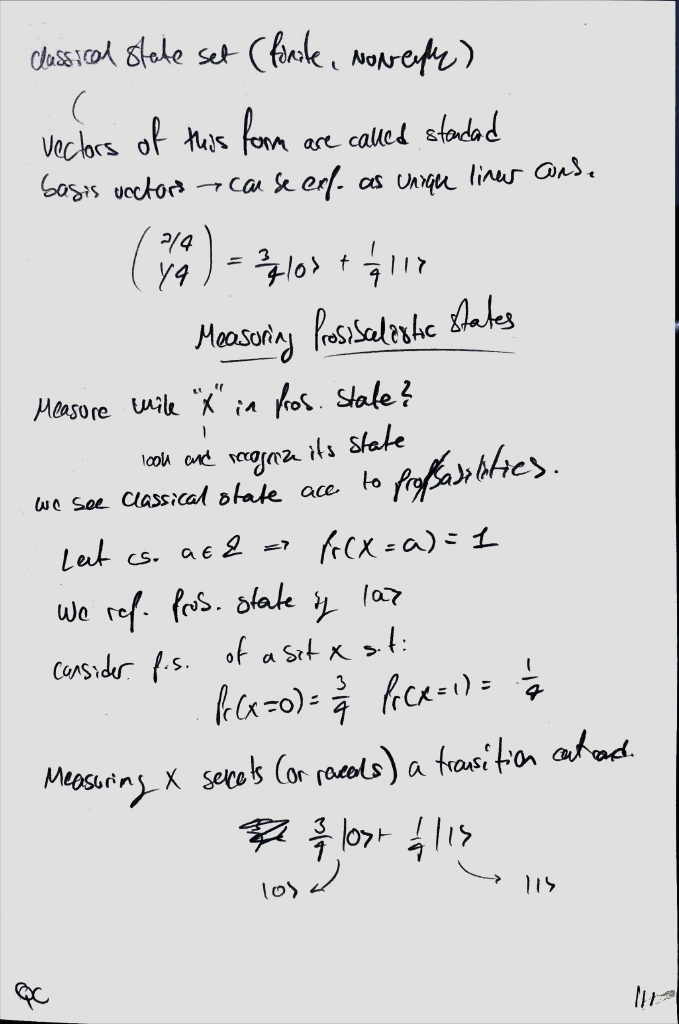 classical state set (finite, nonempty)
vectors of this form are called standard
basis vectors → can be exp. as unique linear
(3/4
1/4) = 3/4 |0> + 1/4 |1>
Measuring Probabilistic States
Measure while "X" in prob. state?
look and recognize its state
we see classical state acc to probabilities.
cs. a ∈ Σ => Pr(X = a) = 1
We ref. prob. state by |a>
consider p.s. of a bit X s.t:
Pr(X=0) = 3/4 Pr(X=1) = 1/4
Measuring X selects (or reveals) a transition
3/4 |0> + 1/4 |1>
|0> |1>
QC